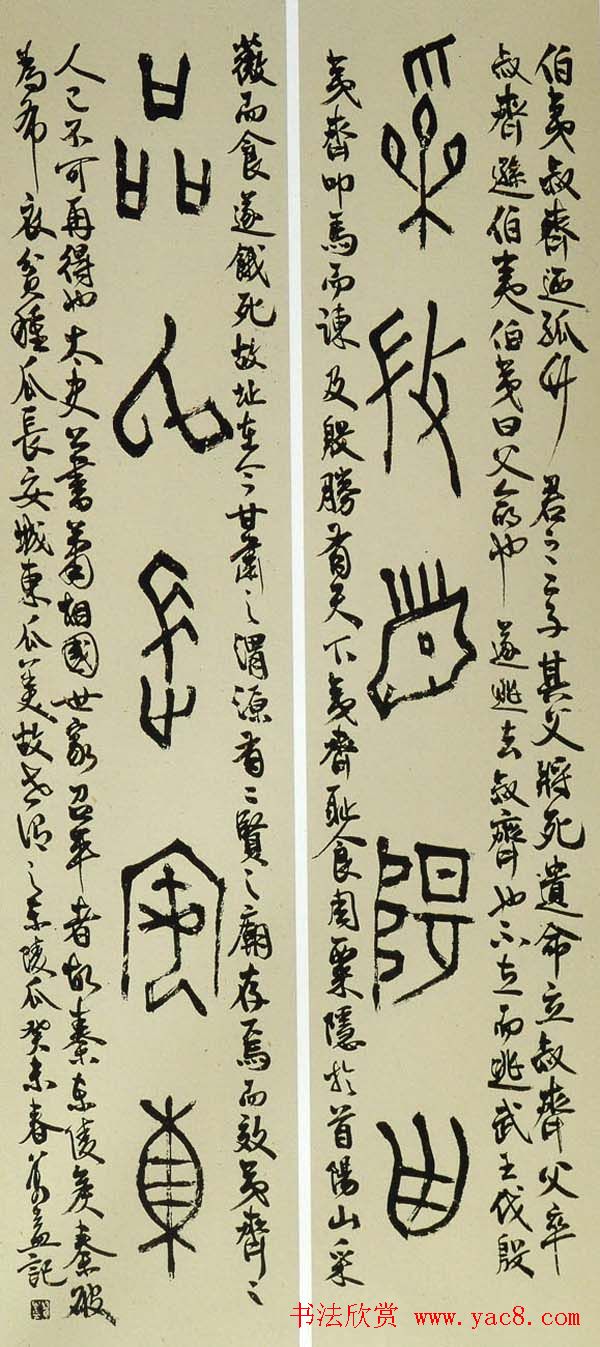 伯夷叔齊迺孤竹君之二子其父將死遺命立叔齊父卒
叔齊遜伯夷伯夷曰父命也遂逃去叔齊也不立而逃武王伐殷
采薇首陽曲
夷齊叩馬而諫及殷勝有天下夷齊恥食周粟隱於首陽山采
薇而食遂餓死故址在今甘肅之渭源有二賢之廟存焉而效夷齊之
品瓜長安東
人已不可再得也太史公書蕭相國世家召平者故秦東陵侯秦破
為布衣貧種瓜長安城東瓜美故世謂之東陵瓜癸未春記
书法欣赏 www.yac8.com